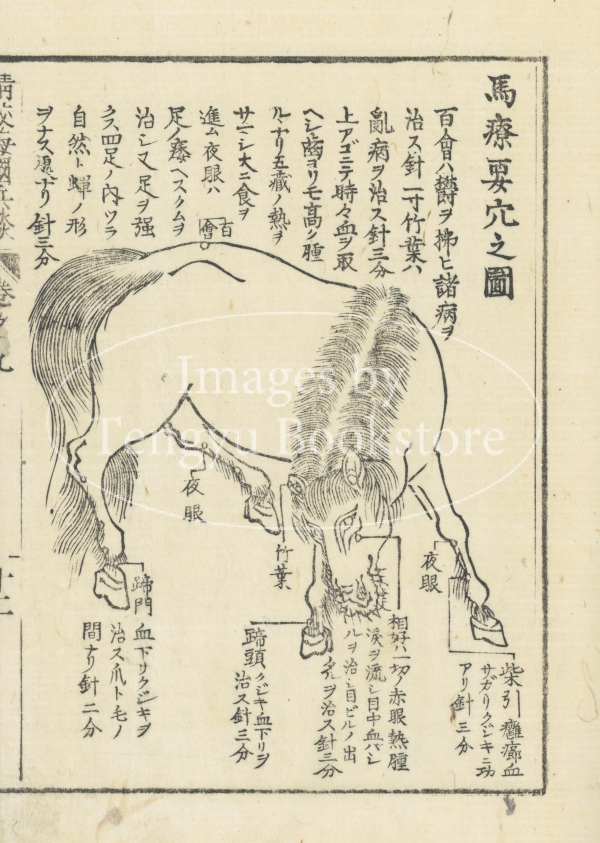 馬療要穴之圖
百會ハ欝ヲ拂ヒ諸病ヲ
治ス針一寸竹葉ハ
亂病ヲ治ス針三分
上アゴニテ時々血ヲ取
ヘシ齒ヨリモ高ク腫
ルナリ五藏ノ熱ヲ
サマシ大ニ食ヲ
進ム夜眼ハ
足ノ蹇ヘスクムヲ
治シ又足ヲ强
クス四足ノ內ツラ
自然ト蟬ノ形
ヲナス處ナリ針三分
百會
夜眼
竹葉
夜眼
蹄門
血下リクジキヲ
治ス爪ト毛ノ
間ナリ針二分
蹄頭
クジキ血下リヲ
治ス針三分
相好ハ一切ノ赤眼熱腫
淚ヲ流シ目中血バシ
ルヲ治シ目ビルノ出
ルヲ治ス針三分
柴引
癰癤血
サガリクジキニ功
アリ針三分
Images by
Tengyu Bookstore